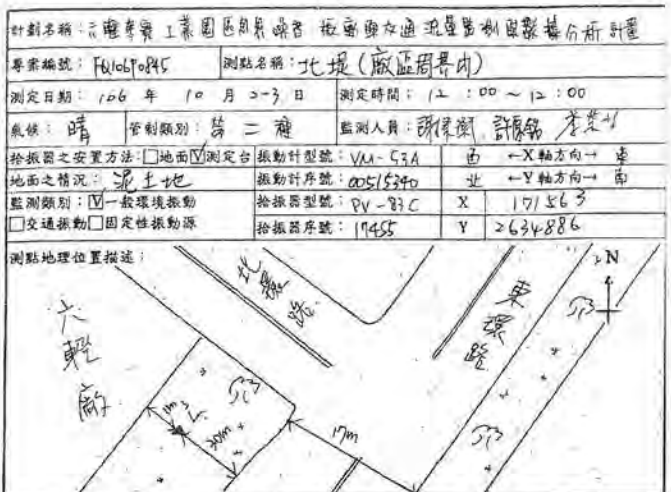 計劃名稱：六輕麥寮工業園區周界噪音振動與交通流量監測與數據分析計畫
專案編號：FQ106P0845 測點名稱：北堤（廠區周界內）
測定日期：106 年 10 月 2-3 日 測定時間：12：00 ～ 12：00
氣候：晴 管制類別：第二種 監測人員：
拾振器之安置方法：□地面☑測定台 振動計型號：VM-53A 西 ←X軸方向→ 東
地面之情況：泥土地 振動計序號：00515340 北 ←Y軸方向→ 南
監測類別：☑一般環境振動 拾振器型號：PV-83C X 171563
□交通振動□固定性振動源 拾振器序號：17455 Y 2634886
測點地理位置描述：
N
北環路
東環路
六輕廠
30m
17m